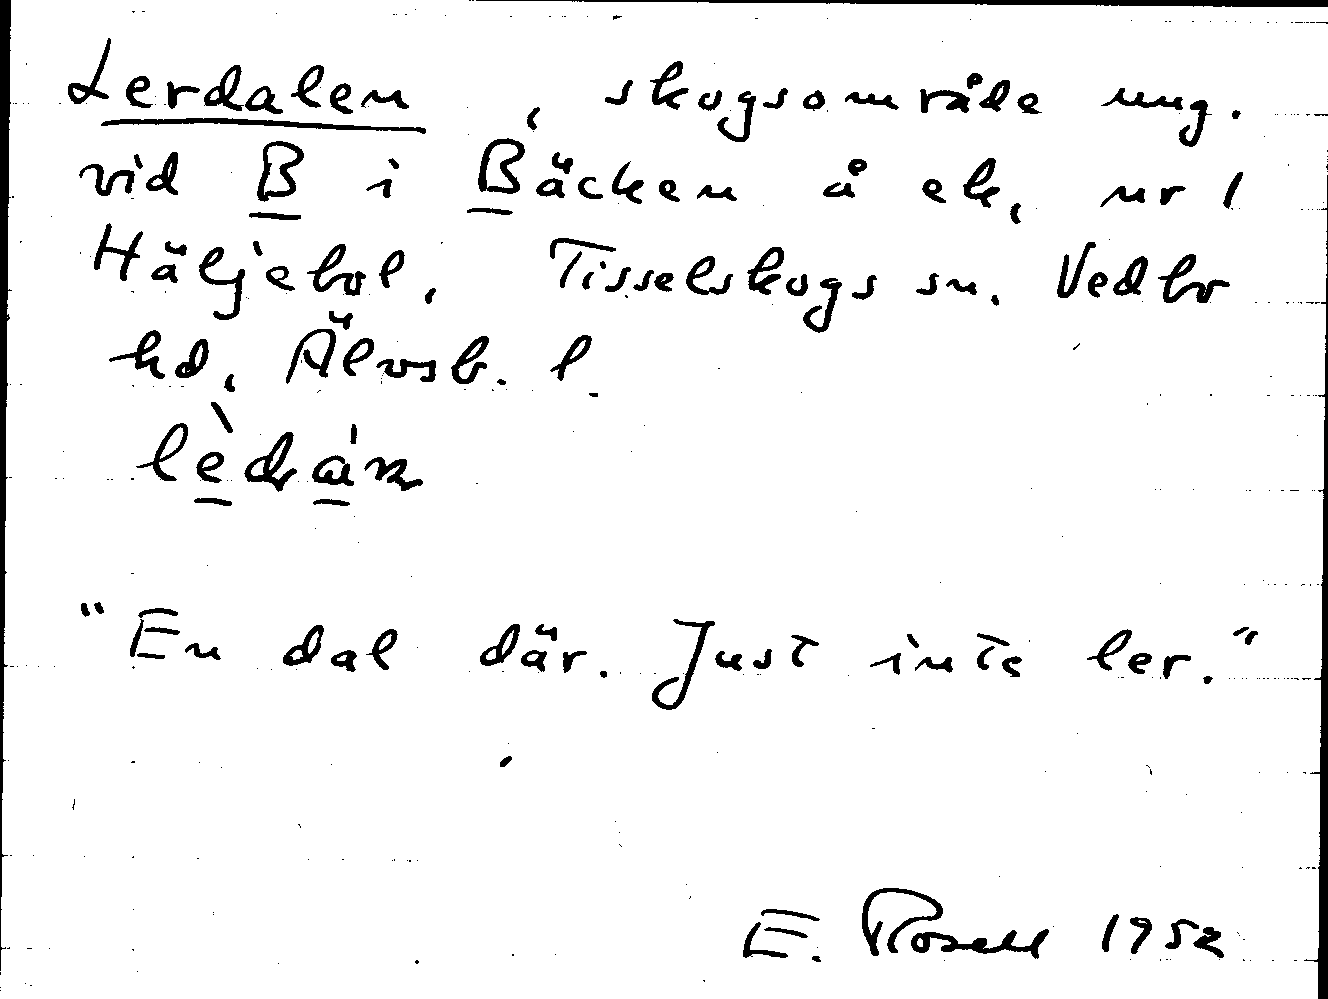 Lerdalen, skogsområde ung.
vid B i Bäcken å ek, nr 1
Häljebol, Tisselskogs sn. Vedbo
hd, Älvsb. l.
"En dal där. Just inte ler."
E. Rosell 1952